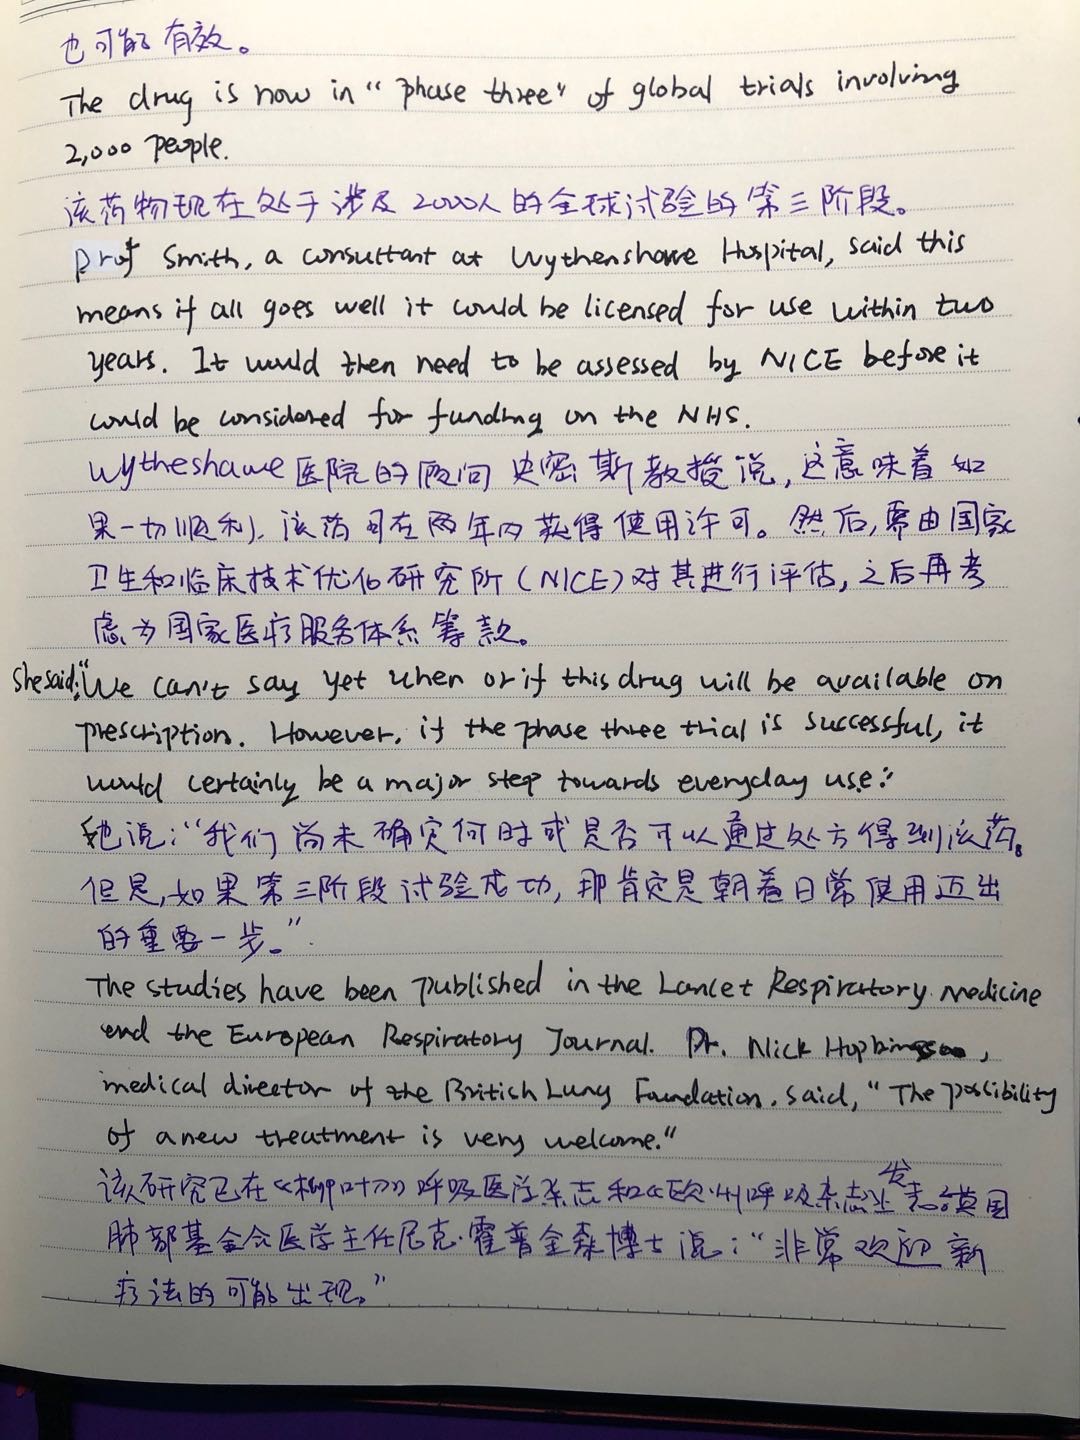 也可能有效。
The drug is now in "phase three" of global trials involving
2,000 people.
该药物现在处于涉及2000人的全球试验的第三阶段。
Prof Smith, a consultant at Wythenshawe Hospital, said this
means if all goes well it could be licensed for use within two
years. It would then need to be assessed by NICE before it
could be considered for funding on the NHS.
Wytheshawe医院的顾问史密斯教授说，这意味着如
果一切顺利，该药可在两年内获得使用许可。然后，需由国家
卫生和临床技术优化研究所（NICE）对其进行评估，之后再考
虑为国家医疗服务体系筹款。
She said: "We can't say yet when or if this drug will be available on
prescription. However, if the phase three trial is successful, it
would certainly be a major step towards everyday use."
她说："我们尚未确定何时或是否可以通过处方得到该药。
但是，如果第三阶段试验成功，那肯定是朝着日常使用迈出
的重要一步。"
The studies have been published in the Lancet Respiratory Medicine
and the European Respiratory Journal. Dr. Nick Hopkinson,
medical director of the British Lung Foundation, said, "The possibility
of a new treatment is very welcome."
该研究已在《柳叶刀》呼吸医学杂志和《欧洲呼吸杂志》上发表。英国
肺部基金会医学主任尼克·霍普金森博士说："非常欢迎新
疗法的可能出现。"